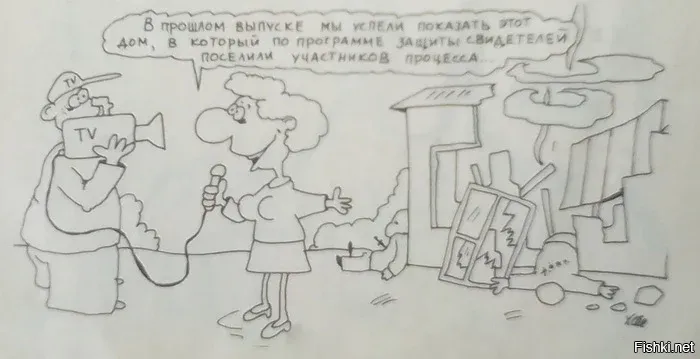 В ПРОШЛОМ ВЫПУСКЕ МЫ УСПЕЛИ ПОКАЗАТЬ ЭТОТ
ДОМ, В КОТОРЫЙ ПО ПРОГРАММЕ ЗАЩИТЫ СВИДЕТЕЛЕЙ
ПОСЕЛИЛИ УЧАСТНИКОВ ПРОЦЕССА...
TV
TV
Fishki.net